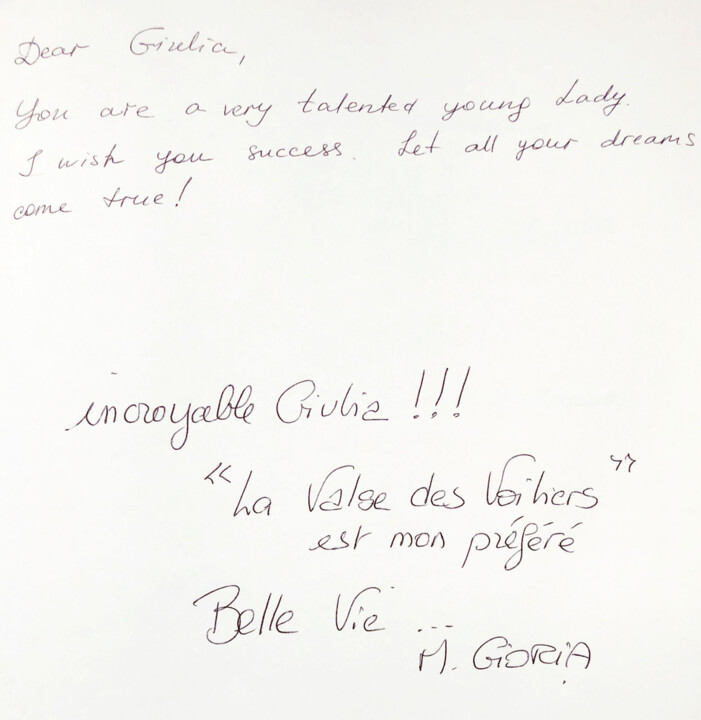 Dear Giulia,
You are a very talented young Lady.
I wish you success. Let all your dreams
come true!
incroyable Giulia !!!
"La Valse des Voiliers"
est mon préféré
Belle Vie ...
M. GIORIA